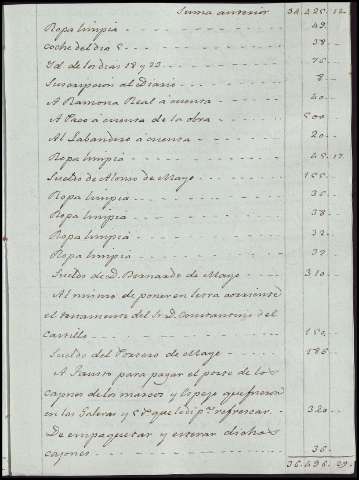 Suma anterior 34,225.12.
Ropa limpia 49.
Coche del dia 8 38
Yd. de los dias 18 y 23 76
Suscripcion al Diario 8..
A Ramona Real á cuenta 20
A Paco á cuenta de la obra 500
Al Labandero á cuenta 20
Ropa limpia 25.17.
Sueldo de Alonso de Mayo 155
Ropa limpia 36
Ropa limpia 38
Ropa limpia 32
Ropa limpia 32
Sueldo de D. Bernardo de Mayo 310
Al mismo de poner en letra corriente
el testamento del Sr. D. Constantino del
Castillo 150
Sueldo del Portero de Mayo 186
A Fausto para pagar el porte de los
cajones de los marcos y Espejo que fueron
en las Galeras y que le di pa. refrescar 320
De empaquetar y esterar dichos
cajones 36
36.496.29.